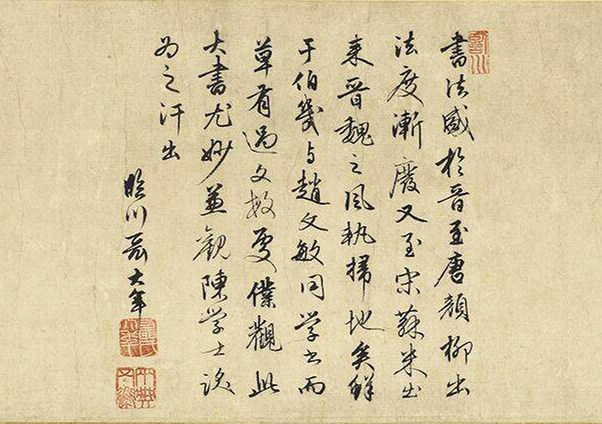 書法盛於晉至唐顏柳出
法度漸廢又至宋蘇米出
来晉魏之風執掃地矣鮮
于伯幾与趙文敏同学書而
草有過文敏處僕觀此
大書尤妙並觀陳学士跋
為之汗出
臨川 大年